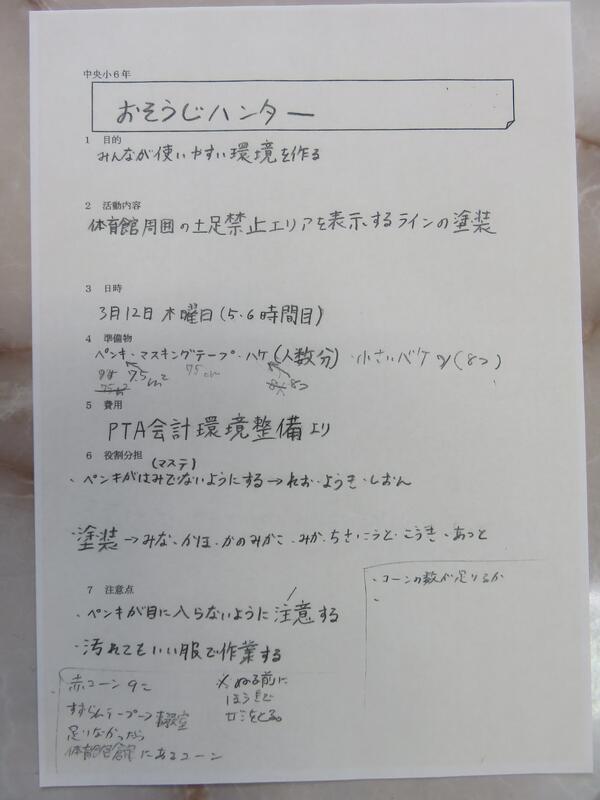 中央小6年
おそうじハンター
1 目的
みんなが使いやすい環境を作る
2 活動内容
体育館周囲の土足禁止エリアを表示するラインの塗装
3 日時
3月12日 木曜日(5・6時間目)
4 準備物
ペンキ・マスキングテープ・ハケ(人数分)・小さいバケツ(8コ)
7.5m² 75cm 8コ
75m²
5 費用
PTA会計環境整備より
6 役割分担
(マステ)
・ペンキがはみでないようにする→れお・ようき・しおん
・塗装→みな・かほ・かの みかこ・みか・ちさ・こうと・こうき・あっと
・コーンの数が足りるか
7 注意点
・ペンキが目に入らないように注意する
・汚れてもいい服で作業する
赤コーン9こ
すずらんテープ
足りなかったら
体育館にあるコーン
※ぬる前に
ほうきで
ゴミをとる。